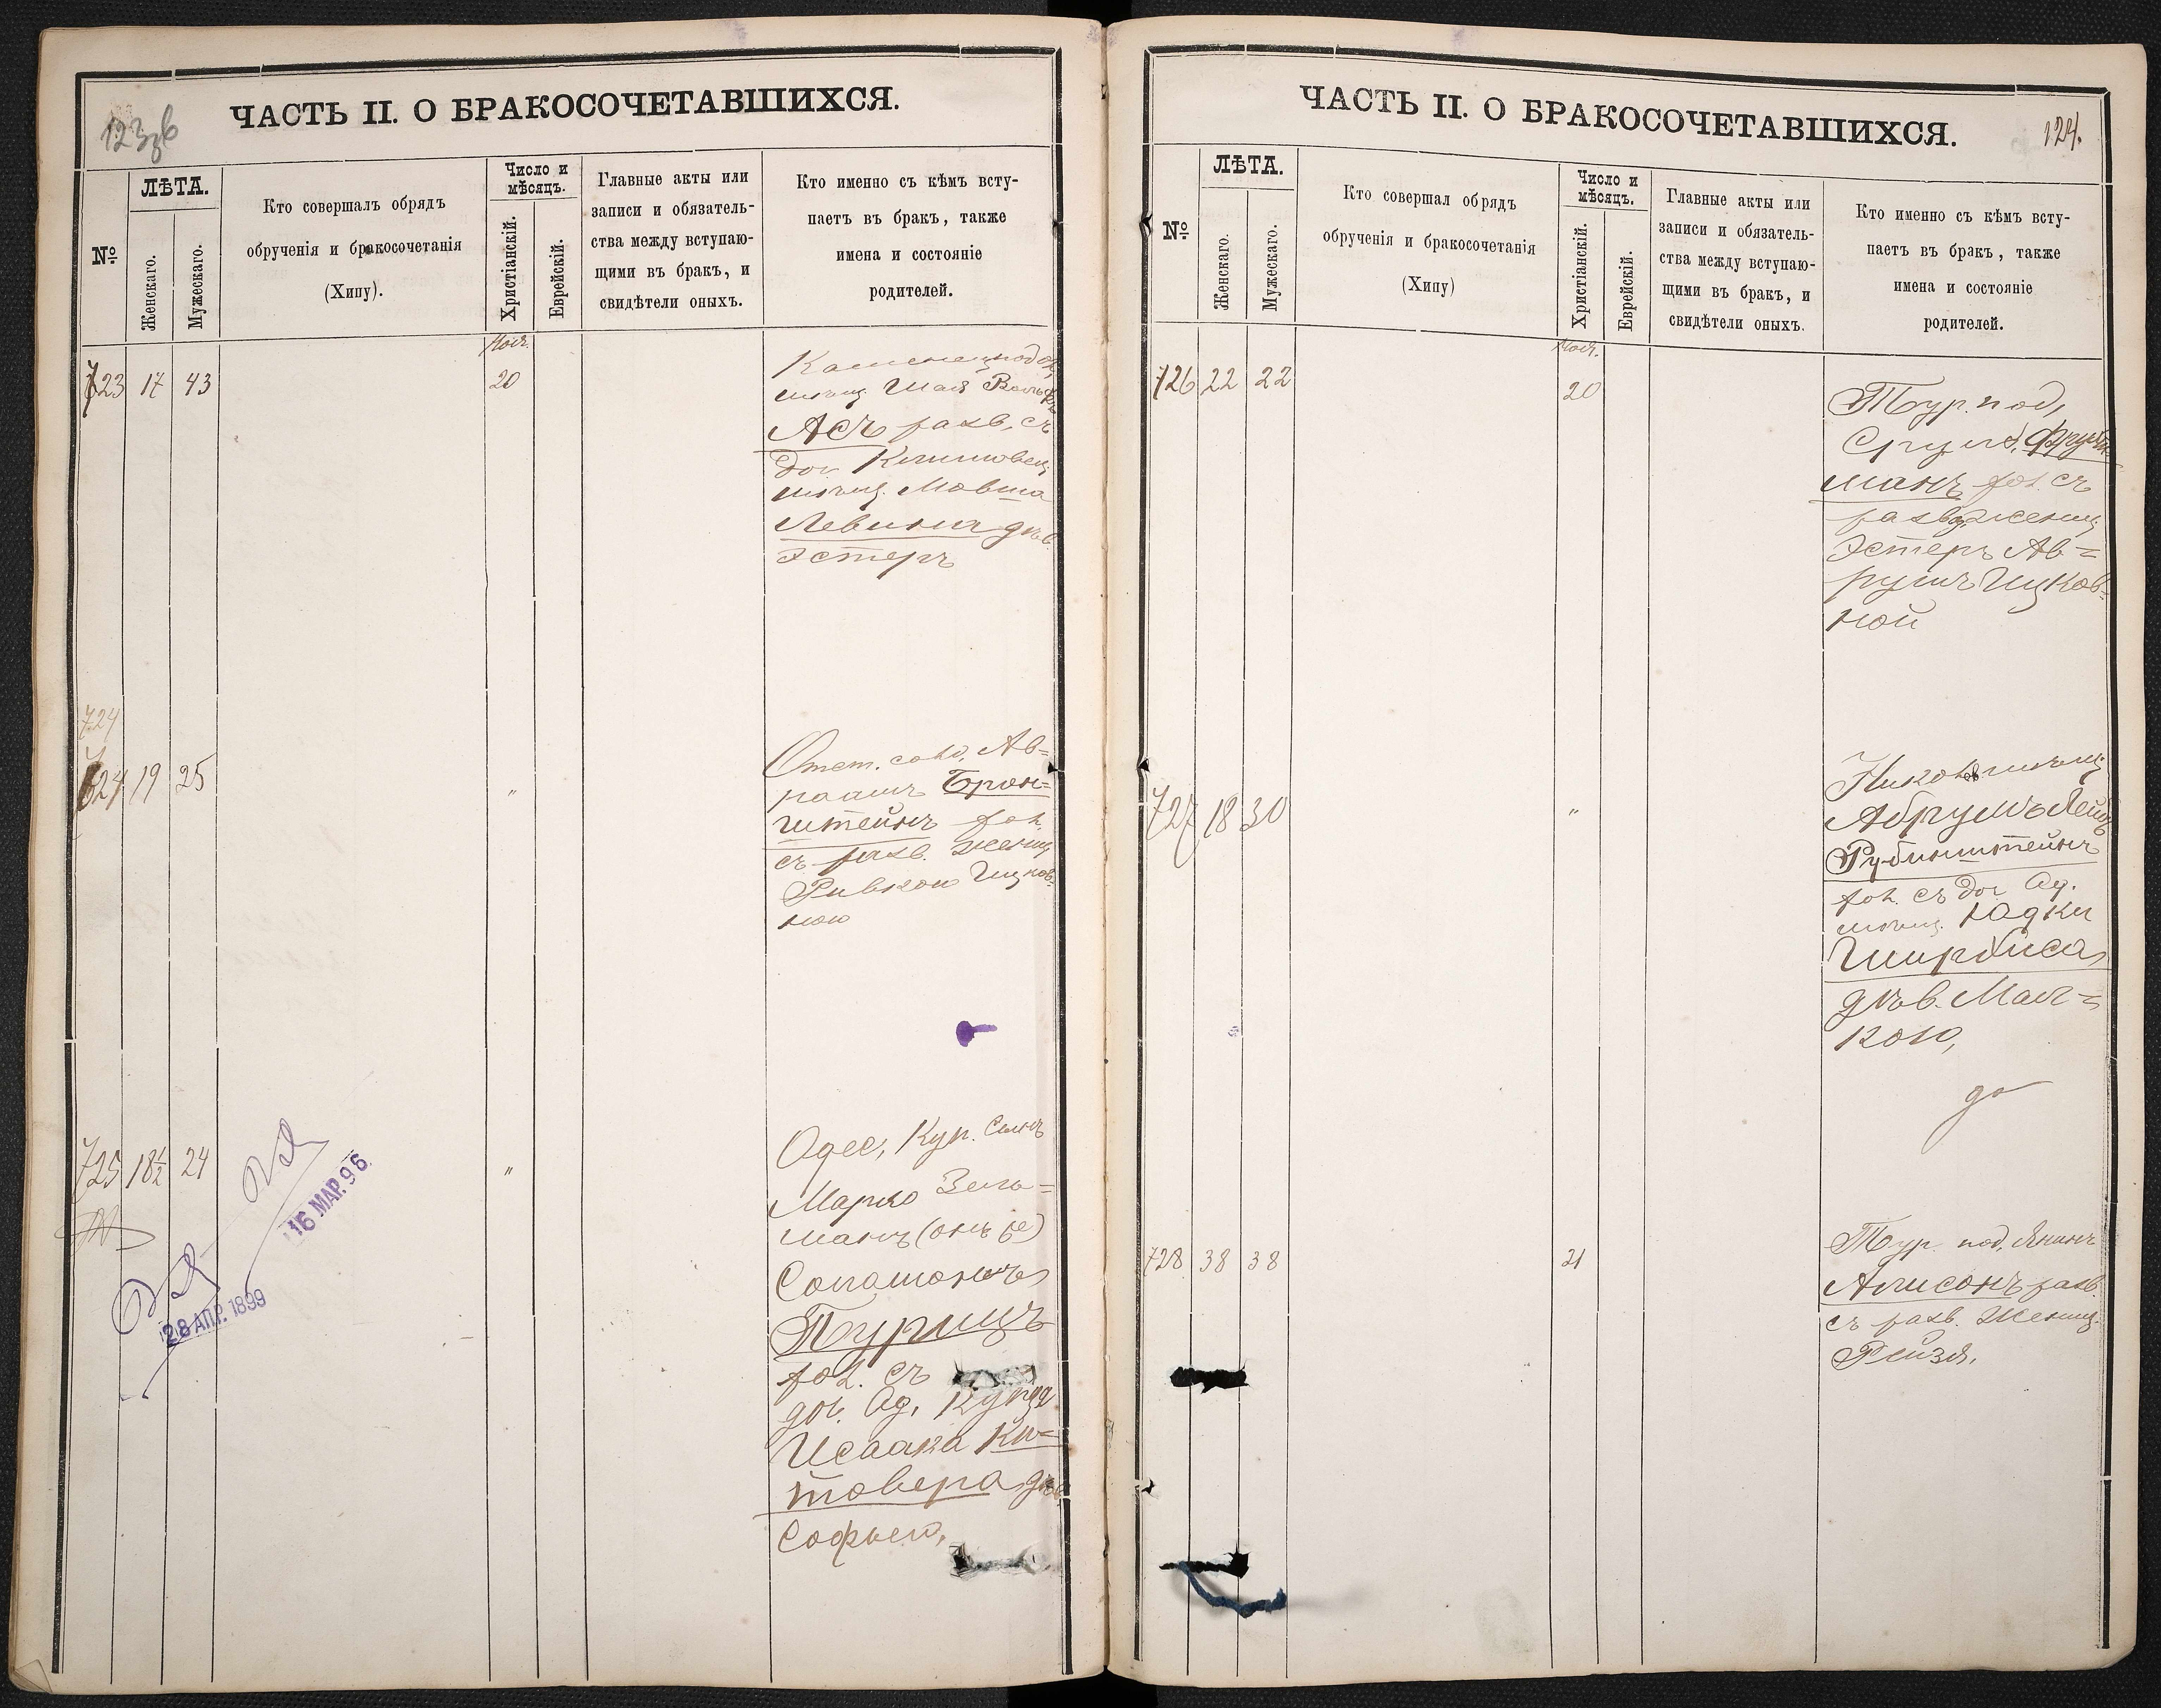 ЧАСТЬ II. О БРАКОСОЧЕТАВШИХСЯ.
№
ЛѢТА.
Женскаго.
Мужескаго.
Кто совершалъ обрядъ
обрученія и бракосочетанія
(Хипу).
Число и
мѣсяцъ.
Христіанскій.
Еврейскій.
Главные акты или
записи и обязатель-
ства между вступаю-
щими въ бракъ, и
свидѣтели оныхъ.
Кто именно съ кѣмъ всту-
паетъ въ бракъ, также
имена и состояніе
родителей.
Ноя.
723 17 43 20
Каменецпод
мѣщ. Шая
Асъ разв. съ
доч
мѣщ. Мовша
Левина дѣв.
Эстеръ
724
724 19 25 "
Отст. солд. Ав=
раамъ Брон=
штейнъ хол.
съ разв. женщ
Ривкою Ицков=
ною
725 18½ 24 "
Одес. Куп. сынъ
Марко Зель=
манъ (онъ же)
Соломоновъ
Пурицъ
хол. съ
доч. Од. Купца
Исаака Ки=
товера дѣв
Софьей,
16 МАР. 96
28 АПР. 1899
ЧАСТЬ II. О БРАКОСОЧЕТАВШИХСЯ.
124.
№
ЛѢТА.
Женскаго.
Мужескаго.
Кто совершал обрядъ
обрученія и бракосочетанія
(Хипу)
Число и
мѣсяцъ.
Христіанскій.
Еврейскій.
Главные акты или
записи и обязатель-
ства между вступаю-
щими въ бракъ, и
свидѣтели оныхъ.
Кто именно съ кѣмъ всту-
паетъ въ бракъ, также
имена и состояніе
родителей.
Ноя.
726 22 22 20
Тур. под,
Сруль Фрухт
манъ хол. съ
развед женщ
Эстеръ Ав=
румъ Ицков=
ной
727 18 30 "
мѣщ
Абрумъ
Рубинштейнъ
хол. съ доч Од.
мѣщ. Юдки
дѣв. Мал=
кою,
728 38 38 21
Тур. под.
разв.
съ разв. женщ.
Рейзя.